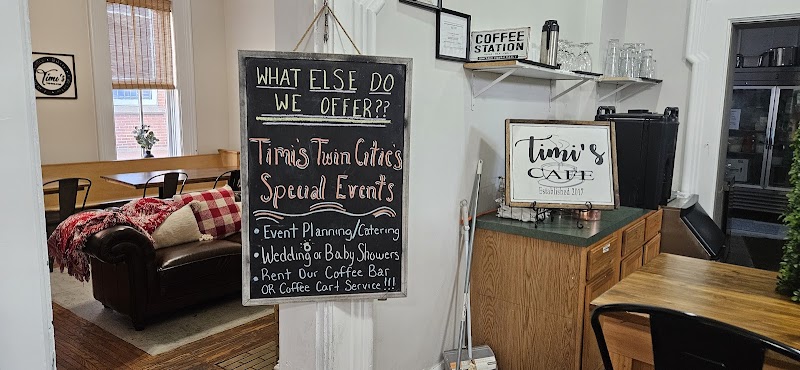 Timi's
WHAT ELSE DO
WE OFFER??
Timi's Twin Citie's
Special Events
• Event Planning/Catering
• Wedding or Baby Showers
• Rent Our Coffee Bar
OR Coffee Cart Service!!!
COFFEE
STATION
Timi's
CAFE
Established 2017